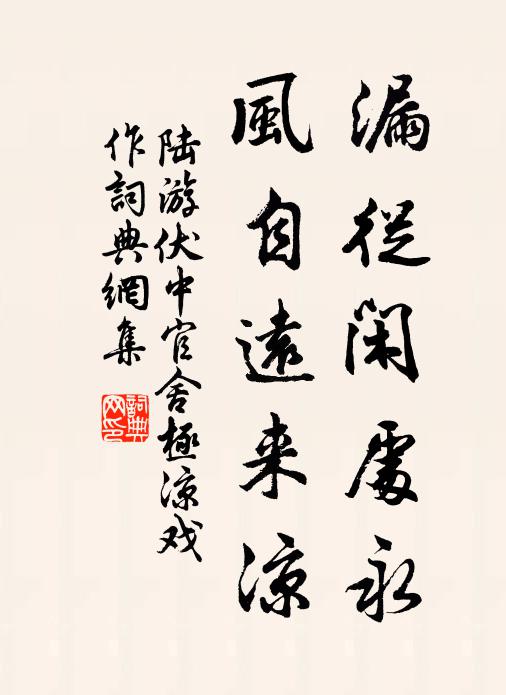 漏從閑處永
風自遠来涼
陆游伏中官舍極涼戏
作詞典網集
詞典
网印